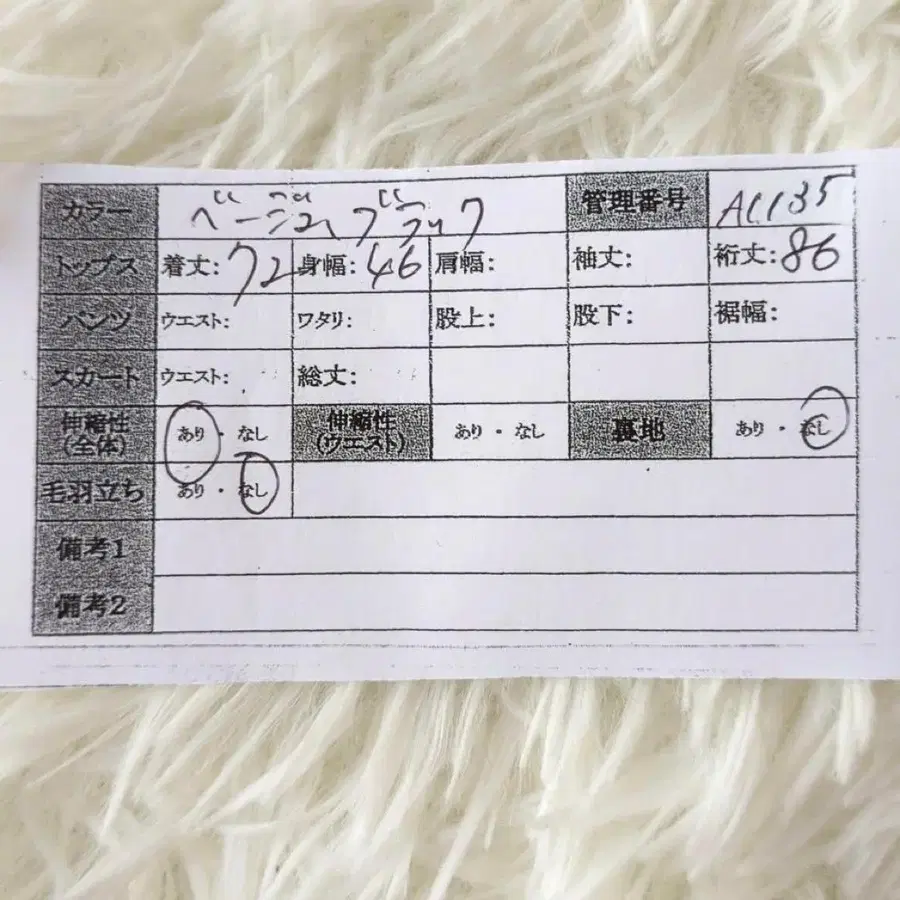 カラー ベージュ、ブラック 管理番号 AC1135
トップス 着丈:72 身幅:46 肩幅: 袖丈: 裄丈:86
パンツ ウエスト: ワタリ: 股上: 股下: 裾幅:
スカート ウエスト: 総丈:
伸縮性(全体) あり・なし 伸縮性(ウエスト) あり・なし 裏地 あり・なし
毛羽立ち あり・なし
備考1
備考2